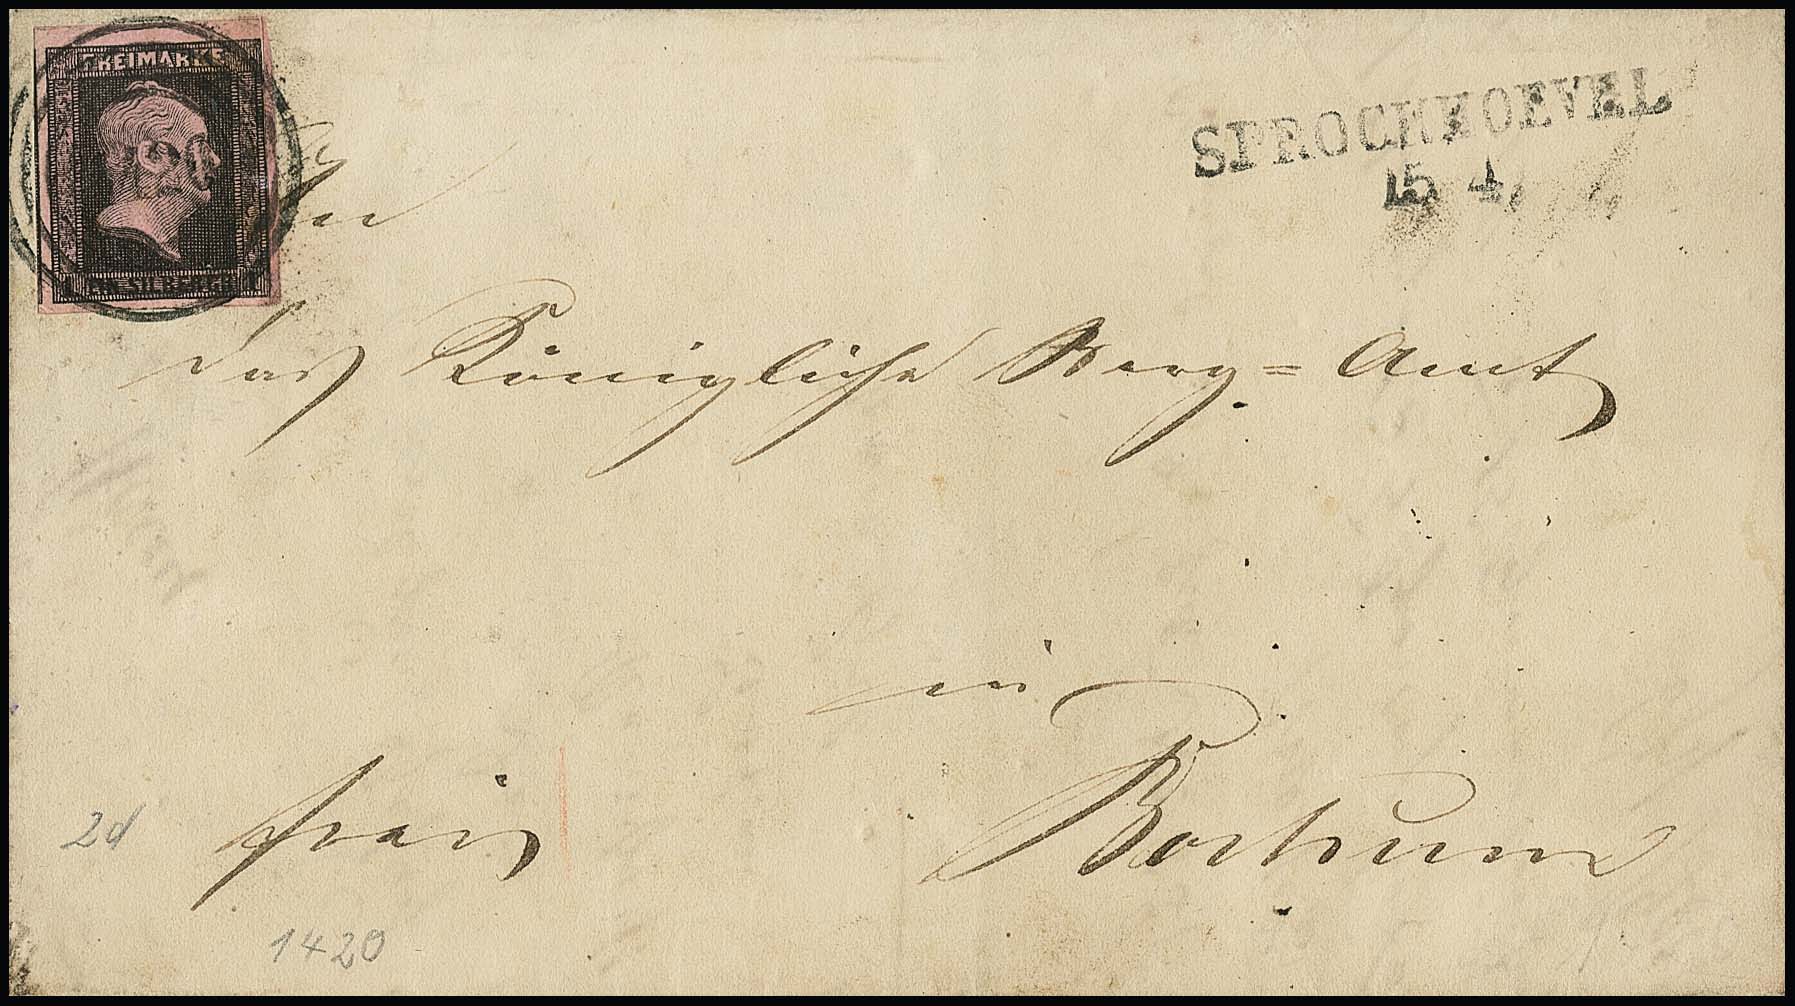 FREIMARKE
1 EIN SILBERGR. 1
SPROCKHOEVEL
15 4
An
das Königliche Berg=Amt
in
Bochum
frei
2d
1420